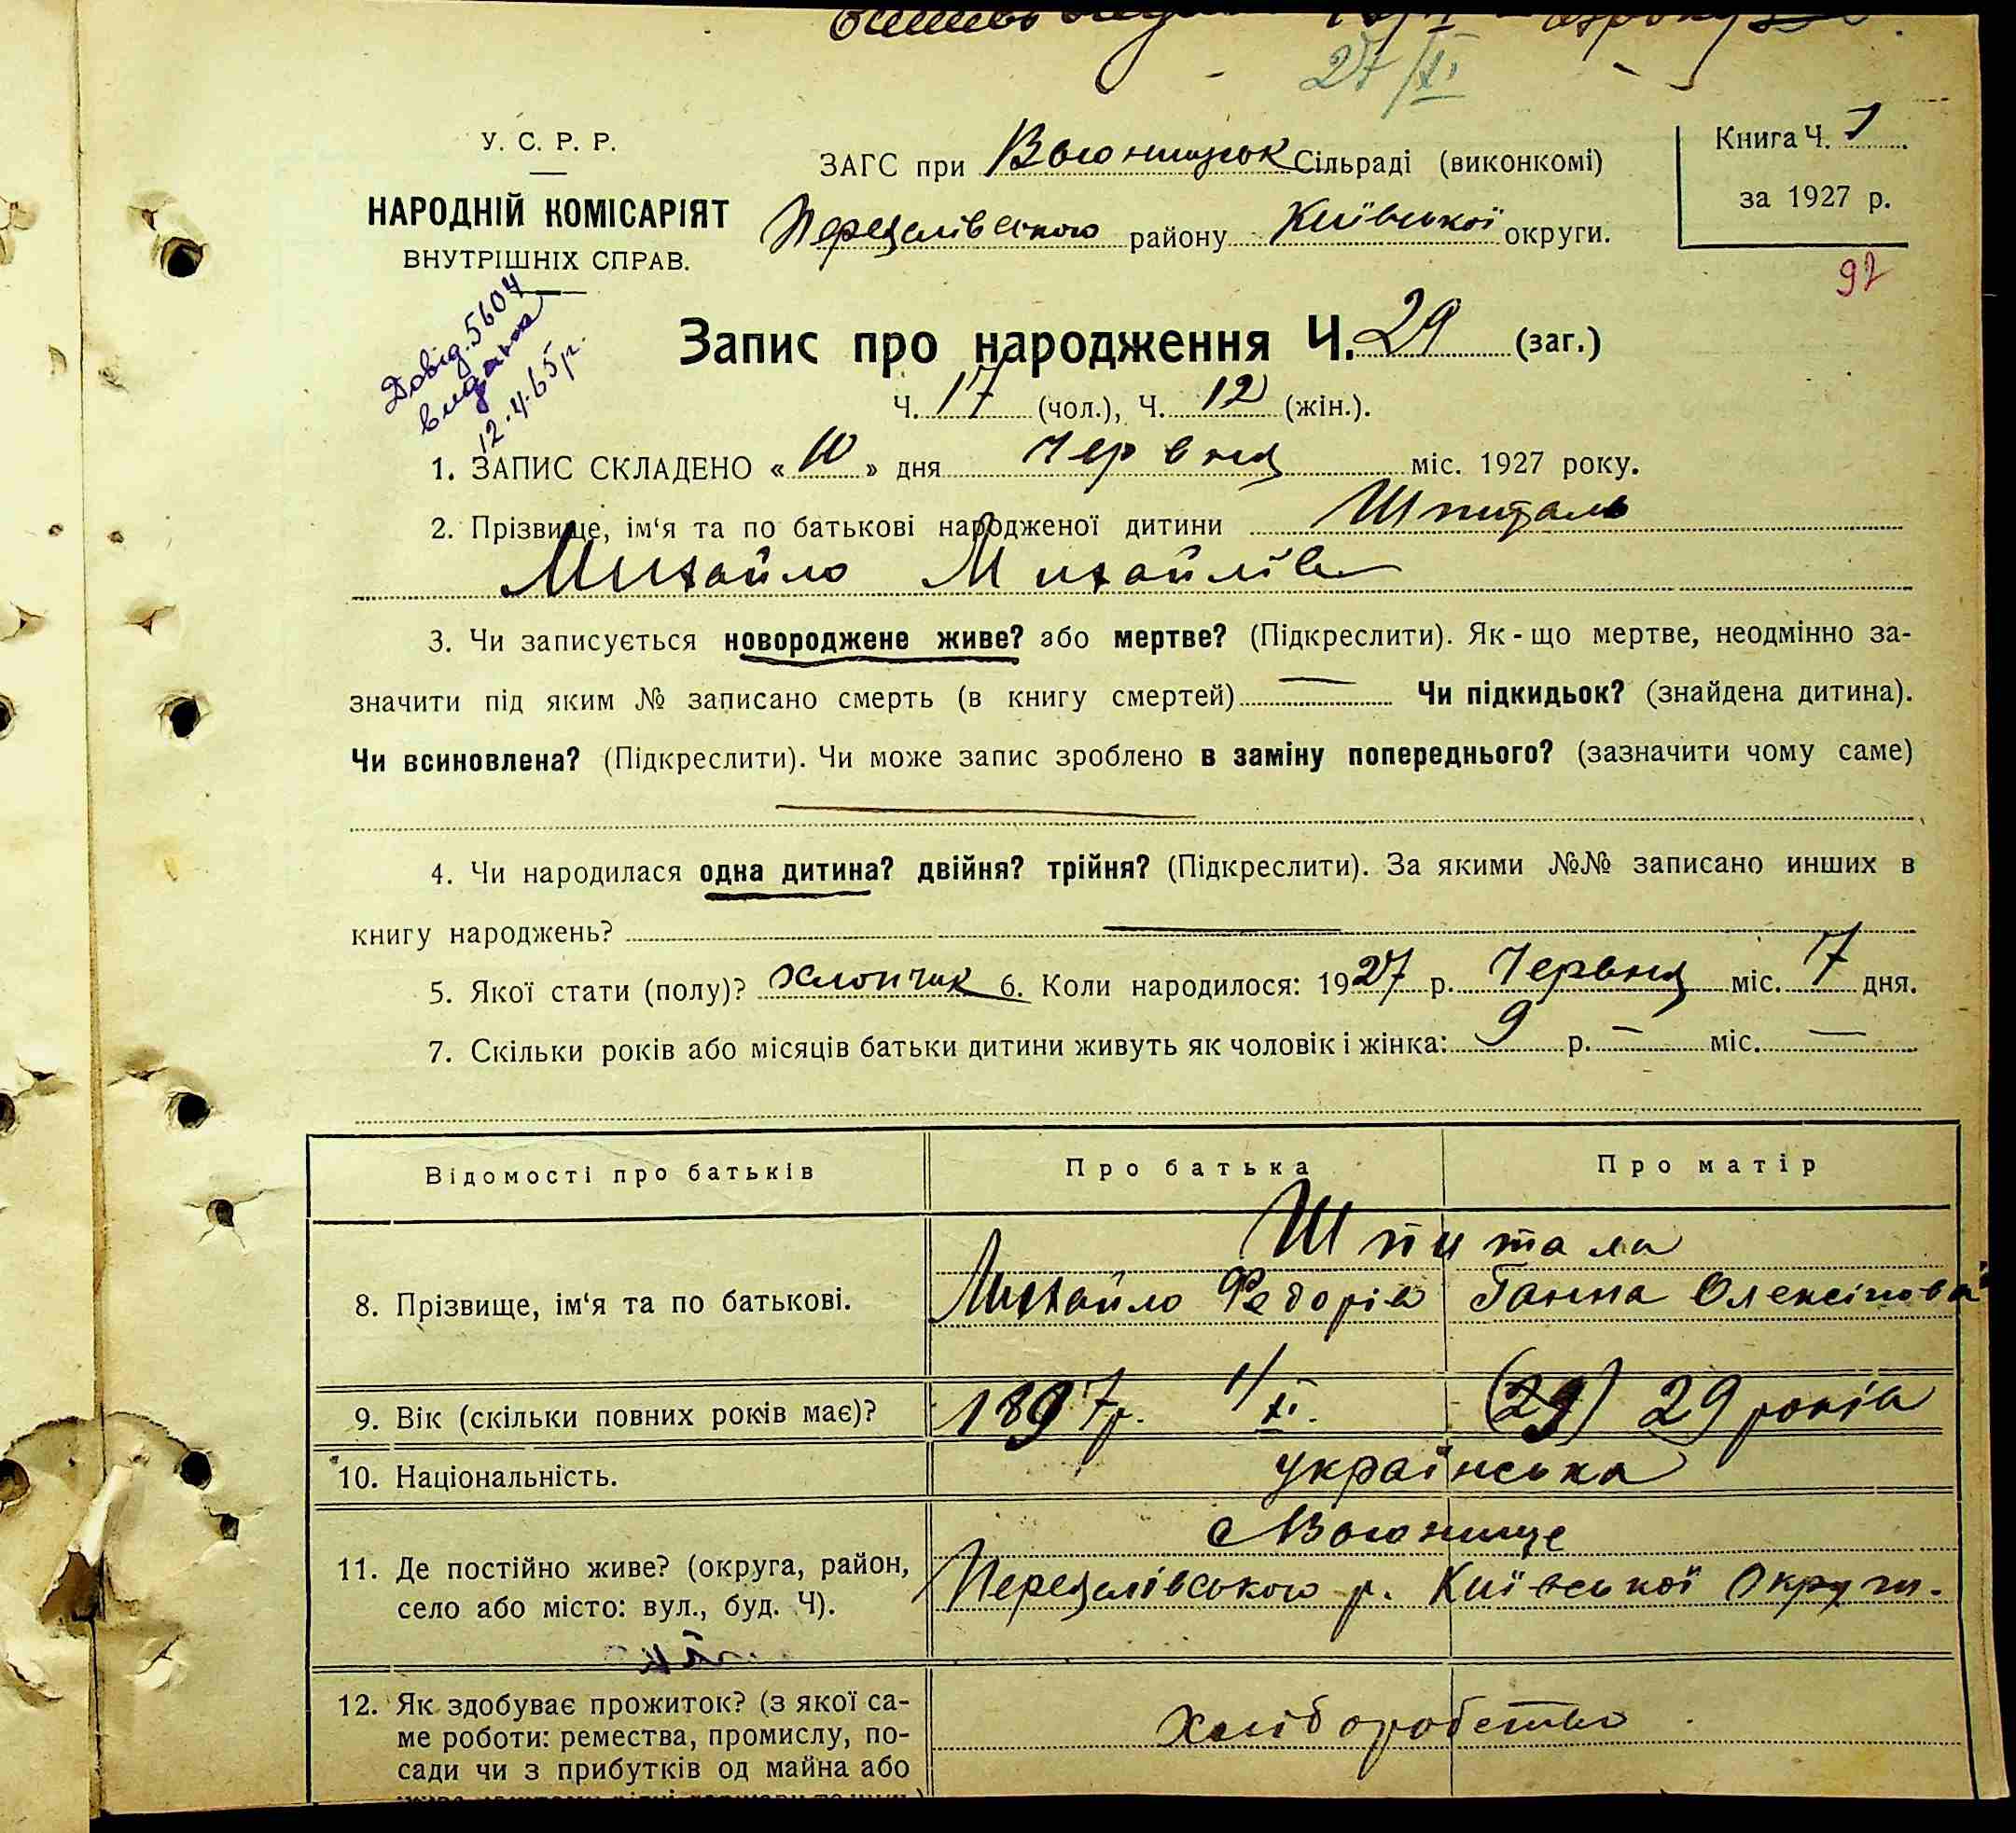 27/XI
У. С. Р. Р.
НАРОДНІЙ КОМІСАРІЯТ
ВНУТРІШНІХ СПРАВ.
ЗАГС при Вьюницьк Сільраді (виконкомі)
Переяслівського району Київської округи.
Книга Ч. 1
за 1927 р.
92
Довід. 5604
видана
12.4.65 р.
Запис про народження Ч. 29 (заг.)
Ч. 17 (чол.), Ч. 12 (жін.).
1. ЗАПИС СКЛАДЕНО « 10 » дня Червня міс. 1927 року.
2. Прізвище, ім‘я та по батькові народженої дитини Шпиталь
Михайло Михайлів
3. Чи записується новороджене живе? або мертве? (Підкреслити). Як-що мертве, неодмінно за-
значити під яким № записано смерть (в книгу смертей) — Чи підкидьок? (знайдена дитина).
Чи всиновлена? (Підкреслити). Чи може запис зроблено в заміну попереднього? (зазначити чому саме)
4. Чи народилася одна дитина? двійня? трійня? (Підкреслити). За якими №№ записано инших в
книгу народжень? —
5. Якої стати (полу)? Хлопчик 6. Коли народилося: 1927 р. Червня міс. 7 дня.
7. Скільки років або місяців батьки дитини живуть як чоловік і жінка: 9 р. — міс. —
Відомості про батьків Про батька Про матір
Шпитала
8. Прізвище, ім‘я та по батькові. Михайло Федорів Ганна Олексіїова
9. Вік (скільки повних років має)? 1897р. 1/XI. (29) 29 років
10. Національність. українська
с Вьюнище
11. Де постійно живе? (округа, район,
село або місто: вул., буд. Ч). Переяслівського р. Київської Округи.
12. Як здобуває прожиток? (з якої са-
ме роботи: ремества, промислу, по- хліборобство
сади чи з прибутків од майна або